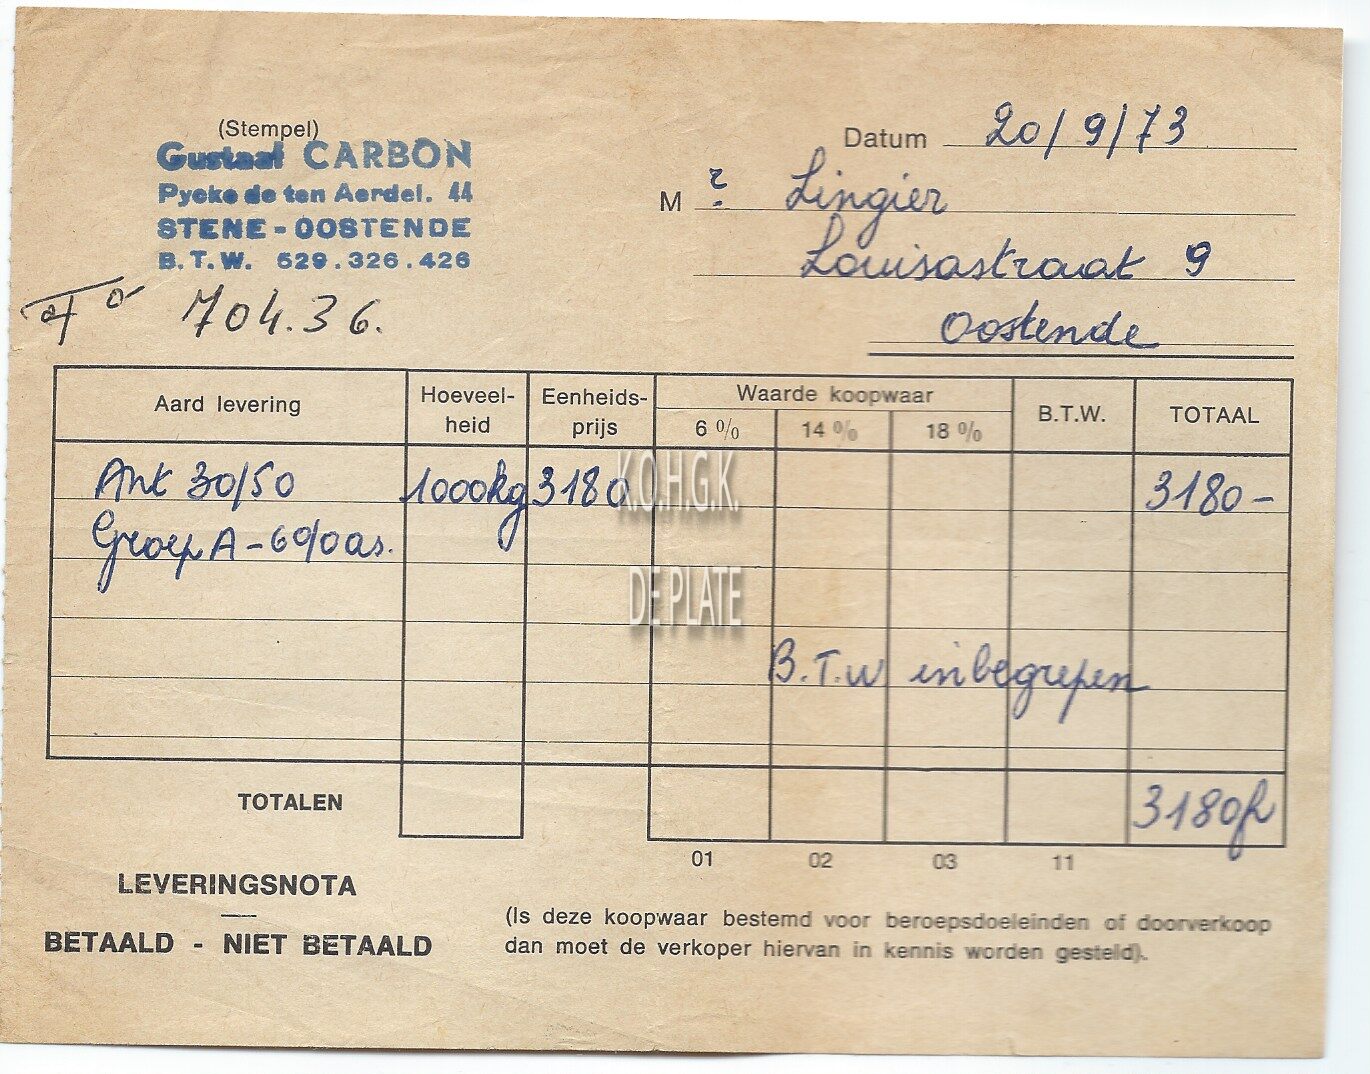 (Stempel)
Gustaaf CARBON
Pycke de ten Aerdel. 44
STENE - OOSTENDE
B.T.W. 529.326.426
704.36.
Datum 20/9/73
M r. Lingier
Louisastraat 9
Oostende
Aard levering Hoeveel-heid Eenheids-prijs Waarde koopwaar B.T.W. TOTAAL
6 % 14 % 18 %
Ant 30/50 1000kg 3180 3180-
Groep A - 6% as.
K.O.H.G.K.
DE PLATE
B.T.W inbegrepen
TOTALEN 3180fr
01 02 03 11
LEVERINGSNOTA
BETAALD - NIET BETAALD
(Is deze koopwaar bestemd voor beroepsdoeleinden of doorverkoop
dan moet de verkoper hiervan in kennis worden gesteld).